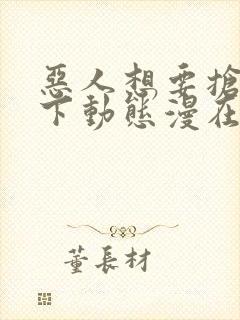 惡人想要搶
下動態漫在
董長材